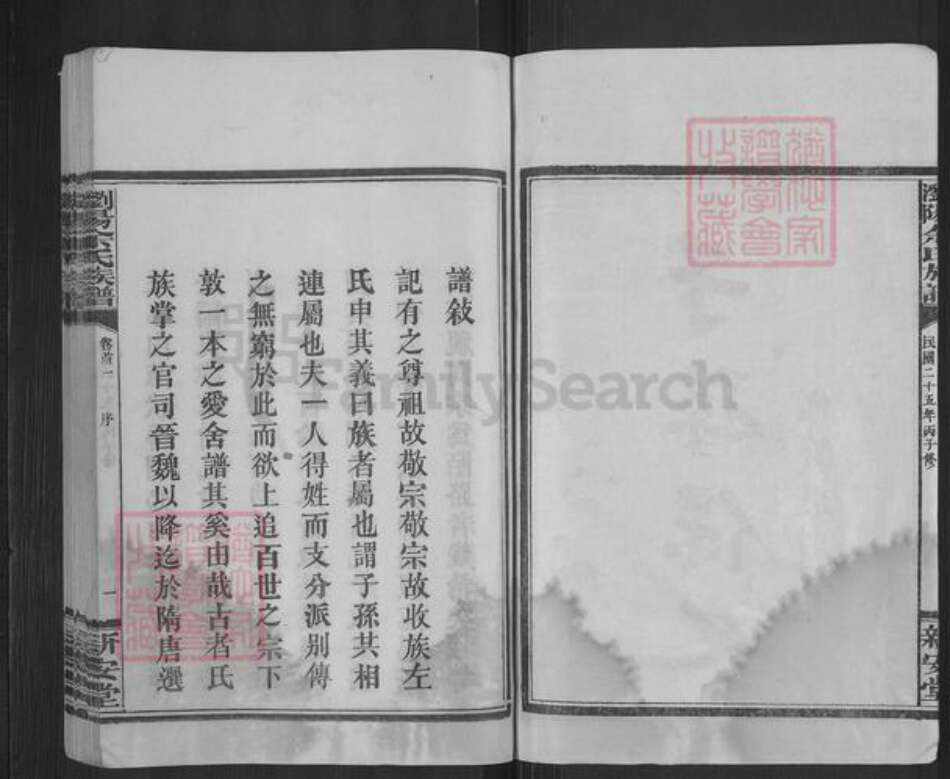 瀏陽余氏族譜
民國二十五年丙子修
新安堂
譜敍
記有之尊祖故敬宗敬宗故收族左
氏申其義曰族者屬也謂子孫其相
連屬也夫一人得姓而支分派别傳
之無窮於此而欲上追百世之宗下
敦一本之愛舍譜其奚由哉古者氏
族掌之官司晉魏以降迄於隋唐選
瀏陽余氏族譜
卷首一
序
一
新安堂
譜學會
收藏
FamilySearch